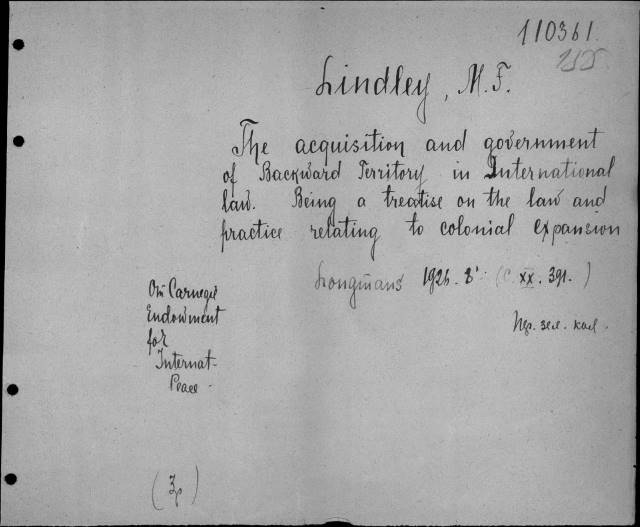 110361.
Lindley, M.F.
The acquisition and government
of Backward Territory in International
law. Being a treatise on the law and
practice relating to colonial expansion
Longmans 1926. 8' (c. xx. 391. )
От Carnegie
Endowment
for
Internat-
Peace -
Пер. зел. кал.